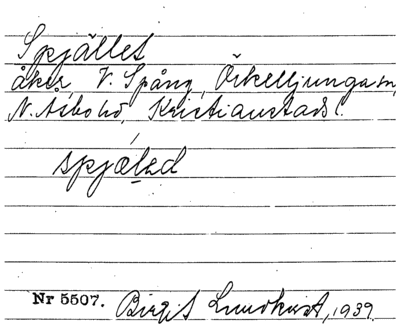 Spjället
åker, V. Spång, Örkelljunga sn,
N. Åsbo hd, Kristianstads l.
spjäled
Nr 5507. Birgit Lundkvist, 1939.